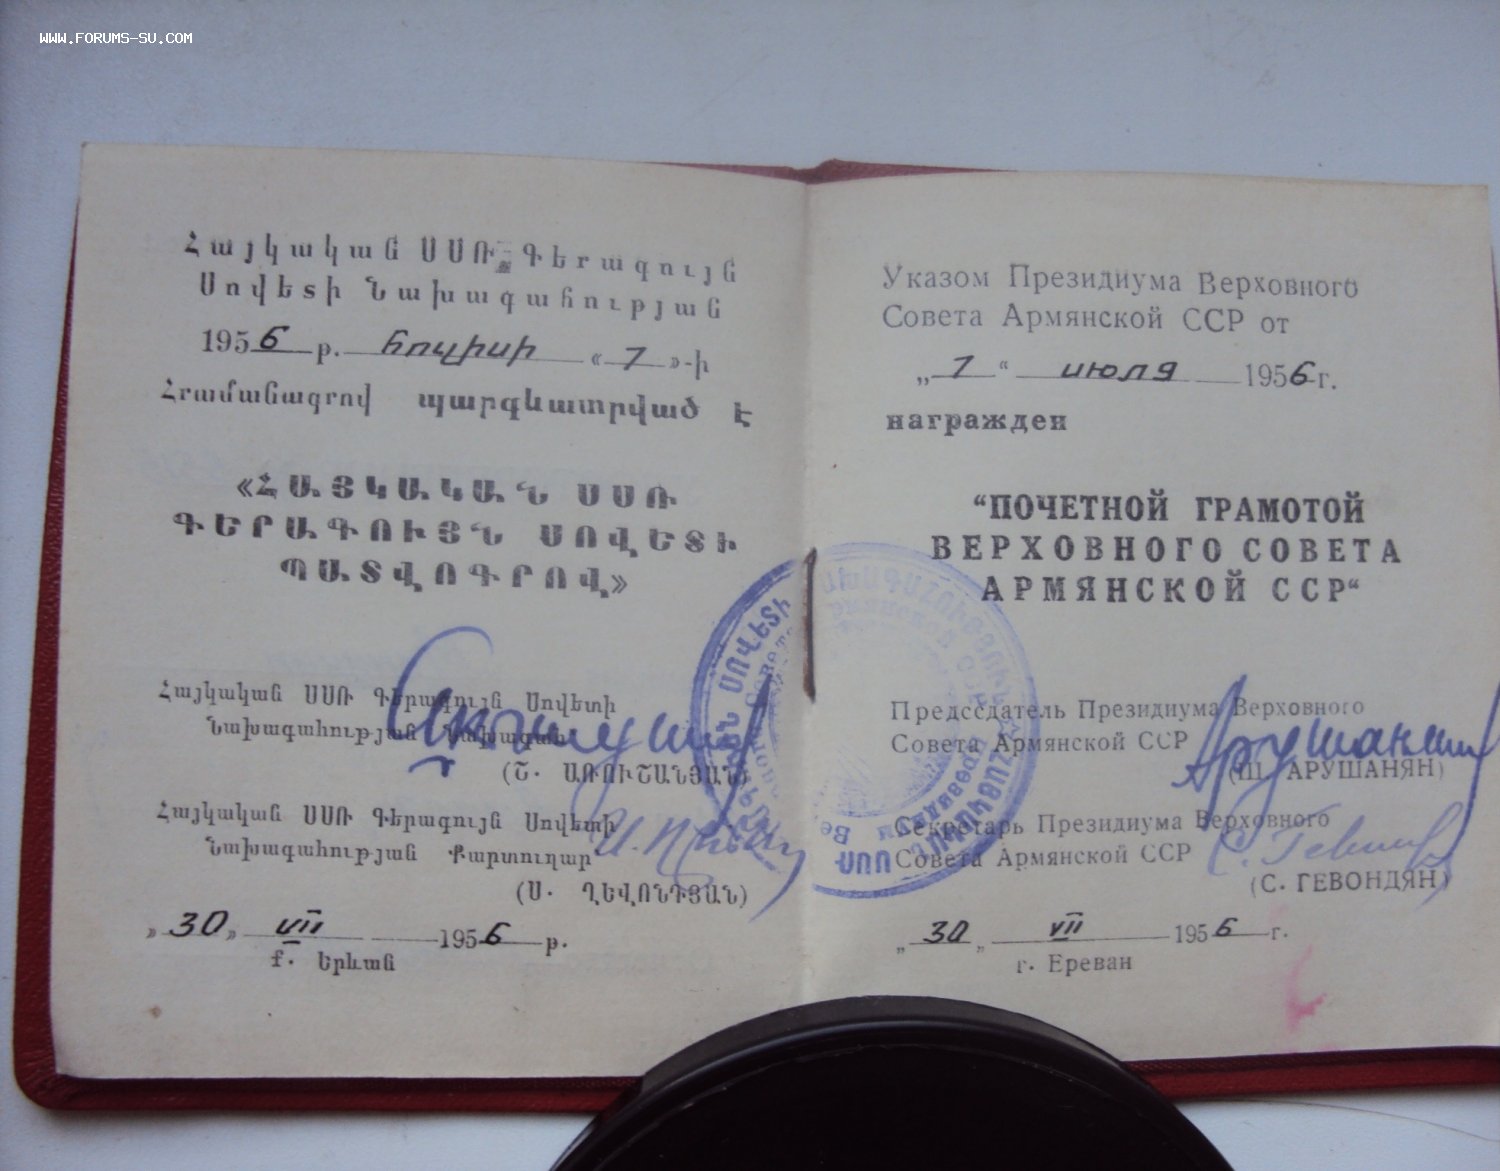 www.forums-su.com
Հայկական ՍՍՌ Գերագույն
Սովետի Նախագահության
1956 թ. հուլիսի «7»-ի
Հրամանագրով պարգևատրված է
«ՀԱՅԿԱԿԱՆ ՍՍՌ
ԳԵՐԱԳՈՒՅՆ ՍՈՎԵՏԻ
ՊԱՏՎՈԳՐՈՎ»
Հայկական ՍՍՌ Գերագույն Սովետի
Նախագահության Նախագահ
(Շ. ԱՌՈՒՇԱՆՅԱՆ)
Հայկական ՍՍՌ Գերագույն Սովետի
Նախագահության Քարտուղար
(Ս. ՂԵՎՈՆԴՅԱՆ)
„30„ VII 1956 թ.
ք. Երևան
Указом Президиума Верховного
Совета Армянской ССР от
„7“ июля 1956 г.
награжден
“ПОЧЕТНОЙ ГРАМОТОЙ
ВЕРХОВНОГО СОВЕТА
АРМЯНСКОЙ ССР“
Председатель Президиума Верховного
Совета Армянской ССР
Арушанян
(Ш. АРУШАНЯН)
Секретарь Президиума Верховного
Совета Армянской ССР
(С. ГЕВОНДЯН)
„30„ VII 1956 г.
г. Ереван